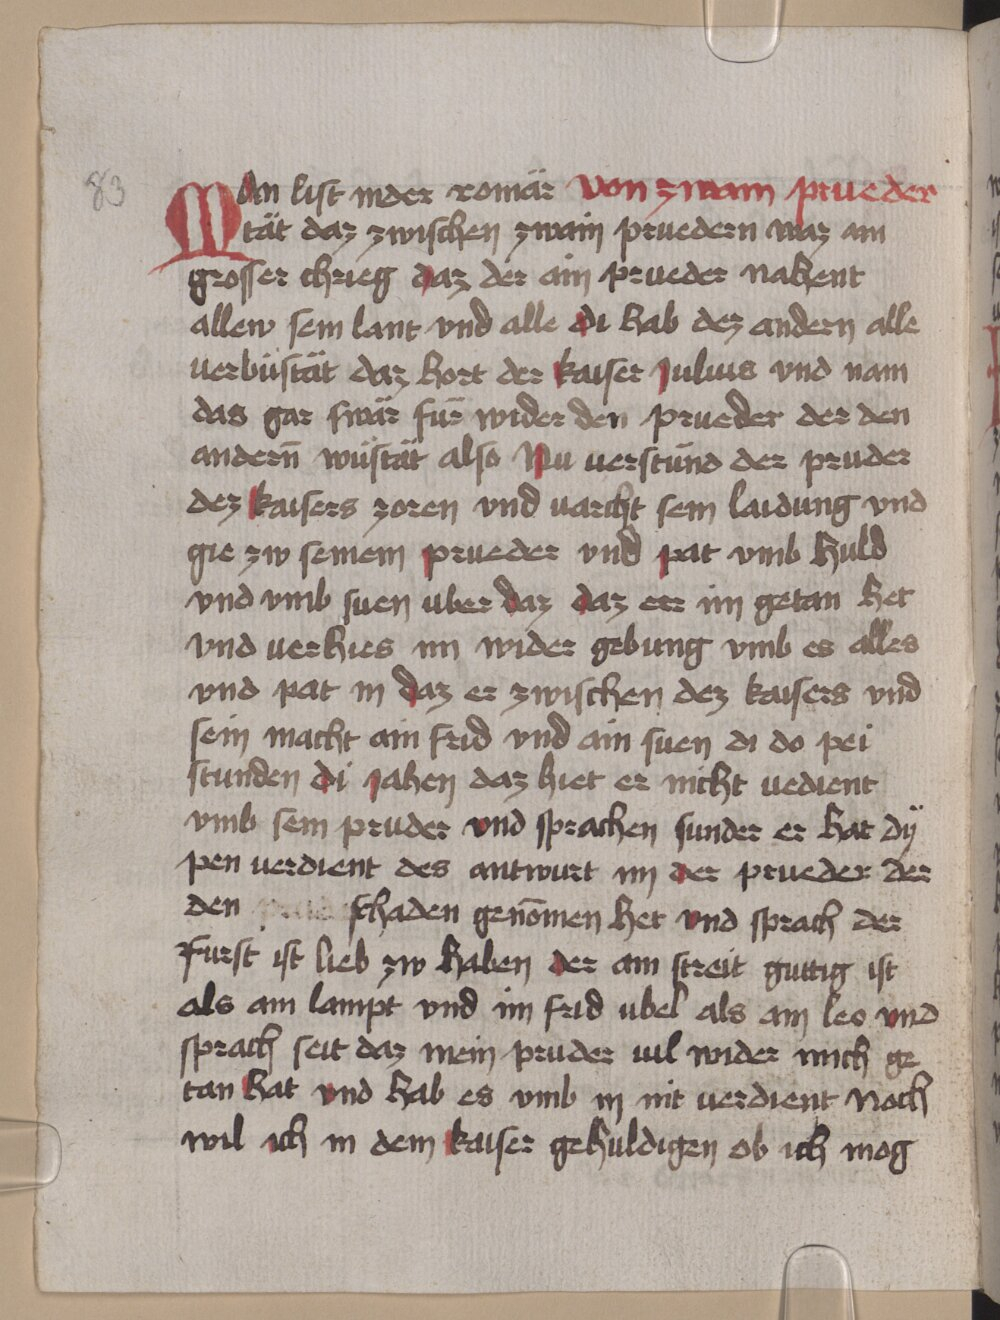 83
Man list in der romär Von zwain prueder
tät daz zwischen zwain pruedern waz ain
grosser chrieg daz der ain prueder nahent
allew sein lant vnd alle di hab dez andern alle
verbüstät daz hort der kaiser Julius vnd nam
das gar swär für wider den prueder der den
andern̄ wüstät also Nu verstŭnd der pruder
dez kaisers zoren vnd varcht sein laidung vnd
gie zw seinem prueder vnd pat vmb huld
vnd vmb suen vber daz daz er im getan het
vnd verhies im wider gebung vmb es alles
vnd pat in daz er zwischen dez kaisers vnd
sein macht ain frid vnd ain suen di do pei
stunden di jahen daz hiet er nicht vedient
vmb sein pruder vnd sprachen sunder er hat dÿ
pen verdient des antwurt im der prueder der
den schaden genōmen het vnd sprach der
furst ist lieb zw haben der am streit guttig ist
als ain lampt vnd im frid ubel als ain leo vnd
sprach seit daz mein pruder uil wider mich ge
tan hat vnd hab es vmb in nit verdient Noch
wil ich in dem kaiser gehuldigen ob ich mog